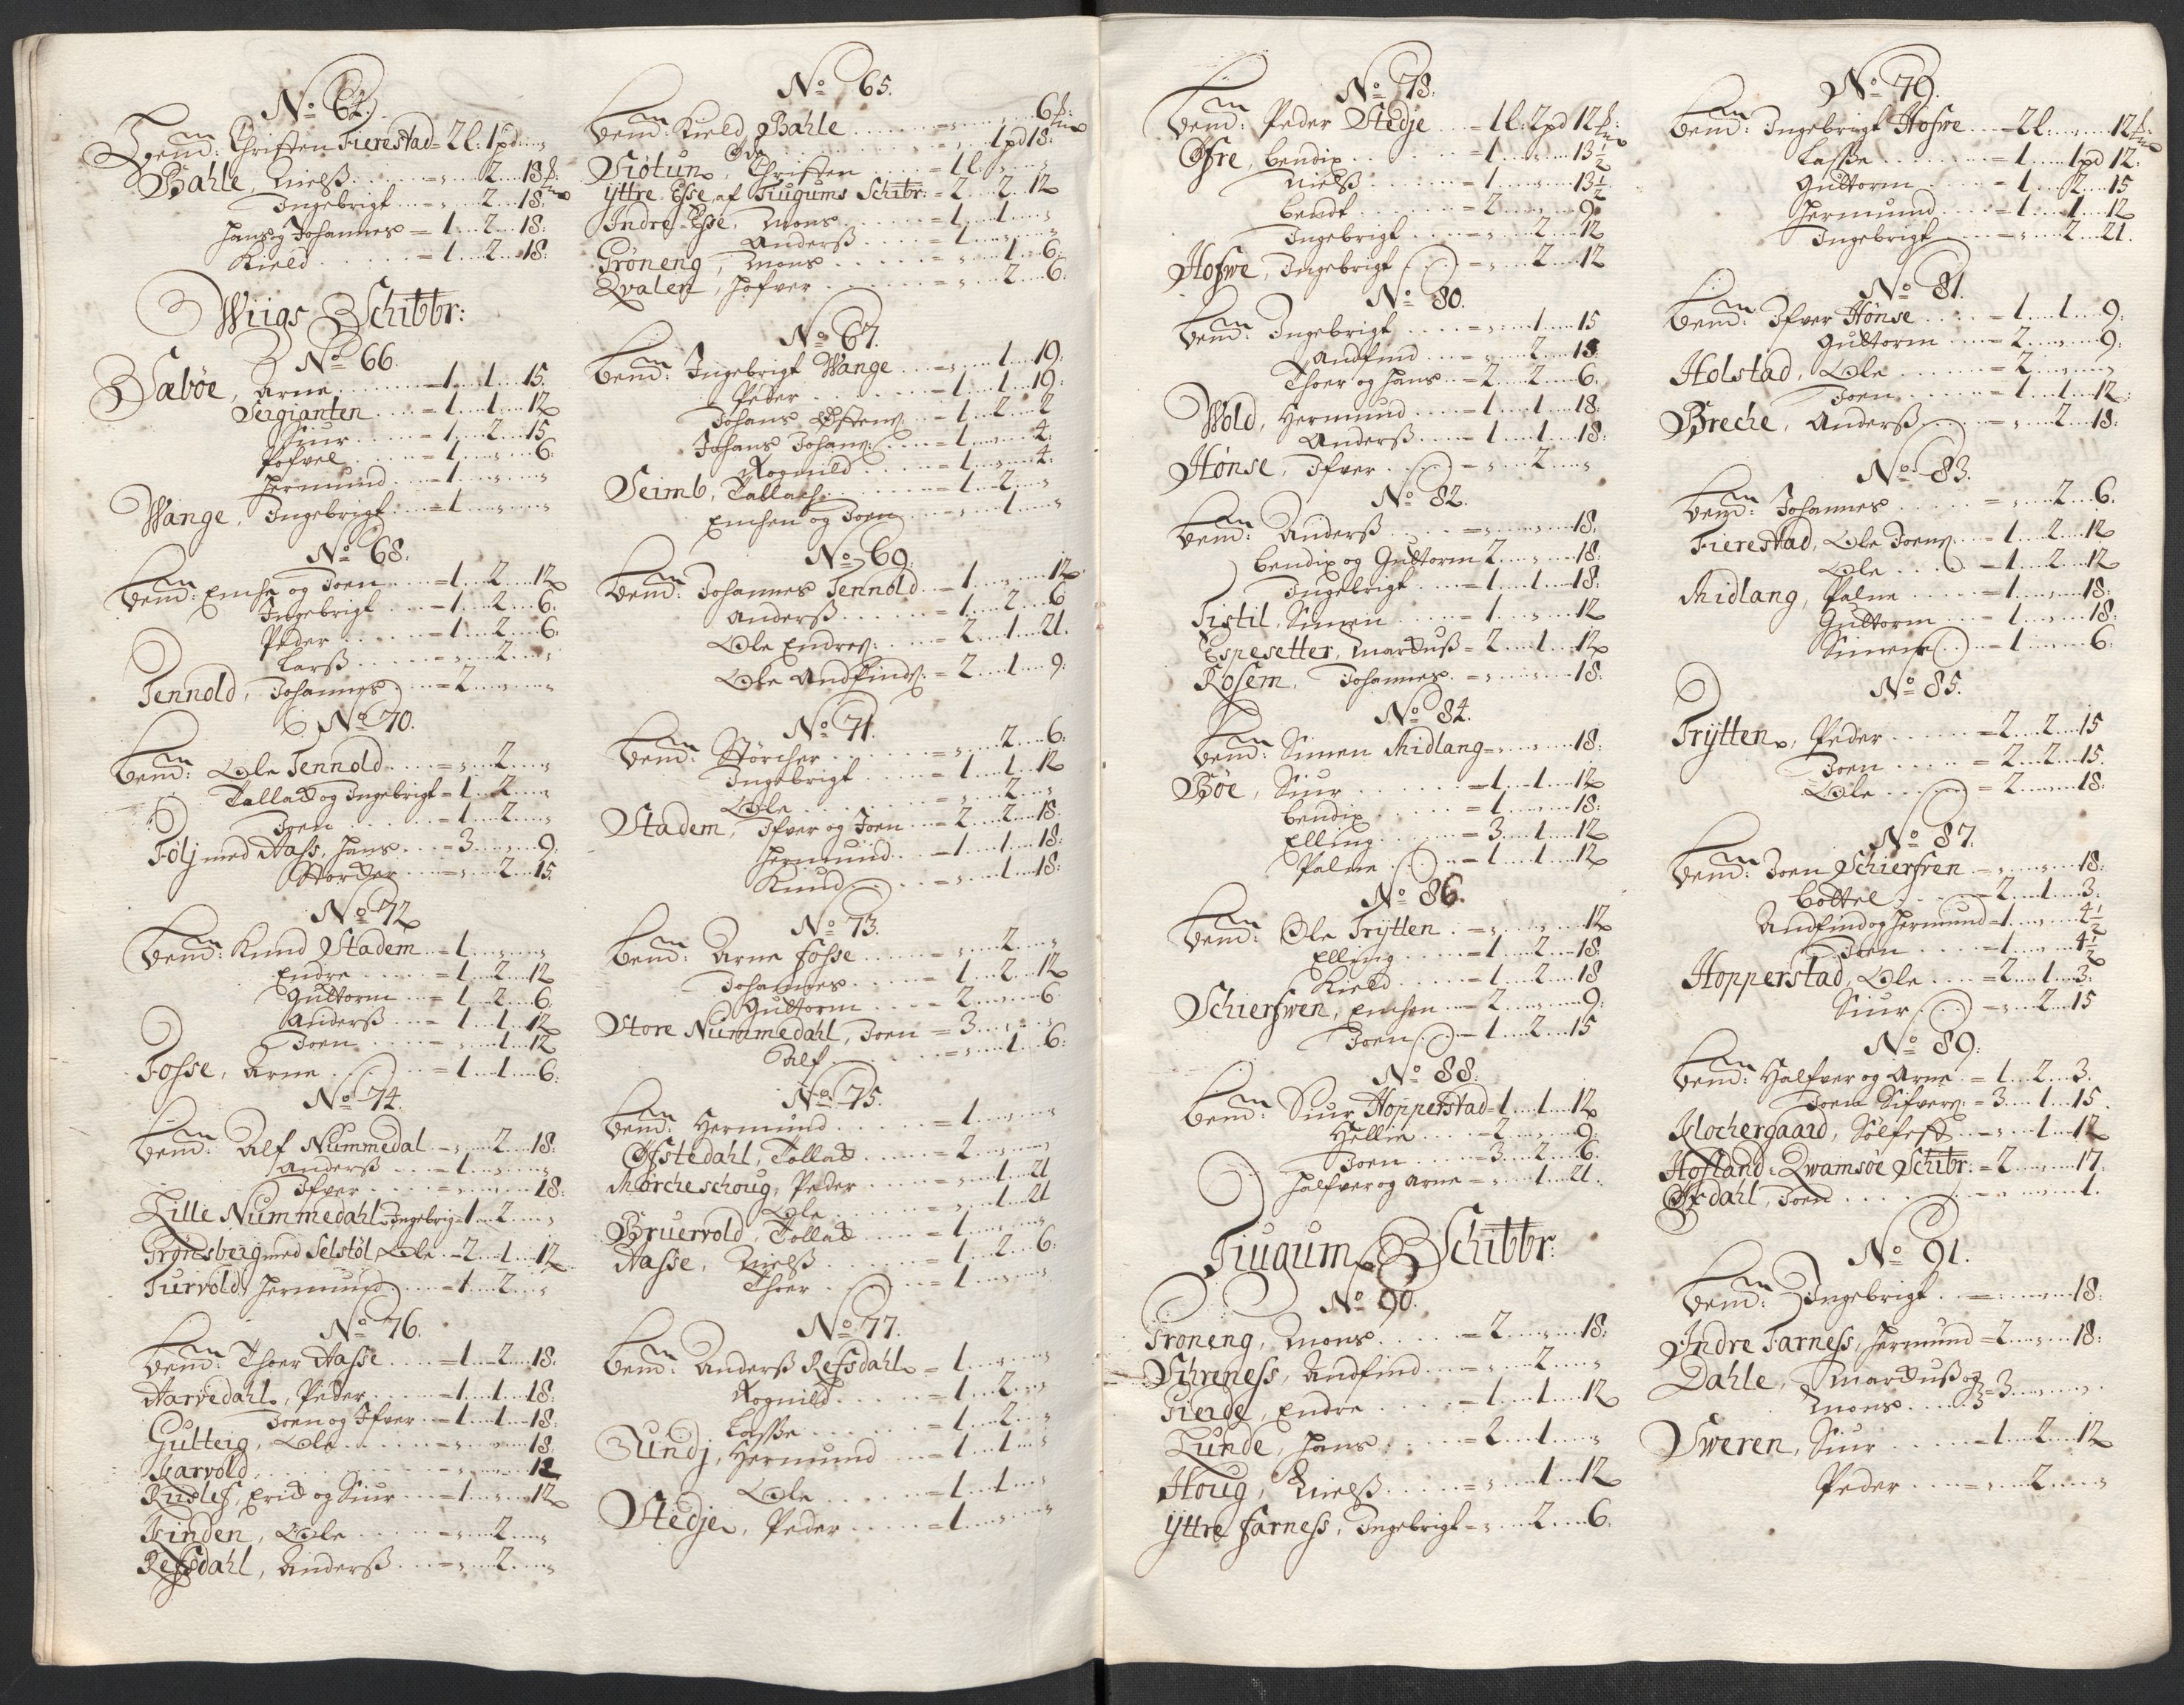 No 64.
bemd: Christen Fierestad = 2 l: 1 pd „
Bahle, Nielß = „ 2 18 ℔:
Ingebrigt = „ 2 18:
Hans og Johannes = 1 2 18:
Kield = 1 2 18:
Wiigs Schibbr:
No 66.
Sæbøe, Arne = 1 1 15.
Sergianten = 1 1 12
Siur = 1 2 15
Pofvel = 1 „ 6:
Hermund = 1 „ „
Wange, Ingebrigt = 1 „ „
No 68.
bemd: Emche og Joen = 1 2 12
Ingebrigt = 1 2 6.
Peder = 1 2 6:
Larß = „ 2 „
Tennold, Johannes = 2 „ „
No 70.
bemd: Ole Tennold = „ 2 „
Tallach og Ingebrigt = 1 2 „
Joen = 1 2 „
Følj med Aass, Hans = 3 „ 9:
Storcker = „ 2 15
No 72
bemd: Knud Stadem = 1 „ „
Endre = 1 2 12
Guttorm = 1 2 6
Anderß = 1 1 12
Joen = „ 1 12
Fosse, Arne = 1 1 6:
No 74.
bemd: Alf Nummedal = „ 2 18:
Anderß = 1 „ „
Ifver = „ „ 18:
Lille Nummedahl, Ingebrig = 1 2 „
Grønsberg med Selstøl, Ole = 2 1 12
Turvold, Hermund = 1 2 „
No 76.
bemd: Thoer Aasse = 1 2 18.
Aarvedahl, Peder = 1 1 18
Joen og Ifver = 1 1 18:
Gulteig, Ole = „ „ 18.
Karvold = „ „ 12
Rusles, Erick og Siur = 1 „ 12
Kinden, Ole = „ 2 „
Refsdahl, Anderß = „ 2 „
No 65.
bemd: Kield Bahle = „ „ 6 ℔:
Ode = „ 1 pd 18:
Siøtun, Christen = 1 l: „ „
Yttre Esse af Tiugums Schibr: = 2 2 12
Indre Esse, Mons = 1 1 „
Anderß = 1 „ „
Grøneng, Mons = „ 1 6:
Qvalen, Hofver = „ 2 6:
No 67.
bemd: Ingebrigt Wange = „ 1 19:
Peder = 1 1 19:
Johans Østens: = 1 2 2
Johans Johans: = 1 „ 4:
Rognild = 1 „ 4:
Seimb, Tallach = 1 2 „
Emchen og Joen = „ 1 „
No 69.
bemd: Johannes Tennold = 1 „ 12
Anderß = 1 2 6
Ole Endres: = 2 1 21.
Ole Andfinds: = 2 1 9:
No 71.
bemd: Størcher = „ 2 6:
Ingebrigt = 1 1 12
Ole = „ 2 „
Stadem, Ifver og Joen = 2 2 18.
Hermund = 1 1 18:
Knud = „ 1 18:
No 73.
bemd: Arne Fosse = „ 2 „
Johannes = 1 2 12
Guttorm = 2 „ 6
Store Nummedahl, Joen = 3 „ „
Alf = „ 1 6:
No 75.
bemd: Hermund = 1 „ „
Ofstedahl, Tollack = 2 „ „
Mørcheschoug, Peder = „ 1 21
Ole = „ 1 21
Bruervold, Tollack = 1 „ „
Aasse, Nielß = 1 2 6:
Thoer = 1 „ „
No 77.
bemd: Anderß Refsdahl = 1 „ „
Rognild = 1 2 „
Lasse = 1 2 „
Sundj, Hermund = 1 1 „
Ole = 1 1 „
Stedje, Peder = 1 „ „
No 78.
bemd: Peder Stedje = 1 l: 2 pd 12 ℔:
Ofre, Bendix = 1 „ 13½
Nielß = 1 „ 13½
Bendt = 2 „ 9
Ingebrigt = „ 2 12
Hofwe, Ingebrigt = „ 2 12
No 80.
bemd: Ingebrigt = „ 1 15
Andfind = „ 2 18
Thoer og Hans = 2 2 6.
Wold, Hermund = 1 1 18:
Anderß = 1 1 18:
Hønse, Ifver = „ 2 „
No 82.
bemd: Anderß = „ „ 18:
Bendix og Guttorm 2 „ 18:
Ingebrigt = 1 1 18:
Tistil, Simen = 1 „ 12
Espesetter, Marckuß = 2 1 12
Rosem, Johannes = „ „ 18:
No 84.
bemd: Simen Midlang = „ „ 18:
Bøe, Siur = 1 1 12
Bendix = 1 „ 18:
Elling = 3 1 12
Palne = 1 1 12
No 86.
bemd: Ole Trÿtten = „ „ 12
Elling = 1 2 18
Kield = 1 2 18
Schierfwen, Emchen = 2 „ 9:
Joen = 1 2 15
No 88.
bemd: Siur Hopperstad = 1 1 12
Hellie = 2 „ 9:
Joen = 3 2 6.
Halfver og Arne = „ 1 21.
Tiugum Schibbr:
No 90.
Grøneng, Mons = 2 „ 18:
Vihreness, Andfind = „ 2 „
Fierde, Endre = 1 1 12
Lunde, Hans = 2 1 „
Houg, Nielß = „ 1 12
Yttre Farness, Ingebrigt = „ 2 6.
No 79.
bemd: Ingebrigt Hofwe = 2 l: „ 12 ℔:
Lasse = 1 1 pd 12:
Guttorm = 1 2 15
Hermund = 1 1 12
Ingebrigt = „ 2 21.
No 81.
bemd: Ifver Hønse = 1 1 9:
Guttorm = 2 „ 9:
Holstad, Ole = 2 „ „
Joen = 1 1 12:
Breche, Anderß = „ 2 18:
No 83.
bemd: Johannes = „ 2 6.
Fierestad, Ole Joens: = 1 2 12
Ole = 1 2 12
Midlang, Palne = 1 „ 18:
Guttorm = 1 „ 18:
Simen = 1 „ 6:
No 85.
Trÿtten, Peder = 2 2 15
Joen = 2 2 15.
Ole = 2 „ 18:
No 87.
bemd: Joen Schierfven = „ „ 18:
Bottel = 2 1 3:
Andfind og Hermund = 1 „ 4½
Joen = 1 „ 4½
Hopperstad, Ole = 2 1 3:
Siur = „ 2 15
No 89:
bemd: Halfver og Arne = 1 2 3.
Joen Sifvers: = 3 1 15.
Klochergaard, Sølfest = „ 1 12
Hofland i Qwamsøe Schibr: = 2 „ 17:
Ofvdahl, Joen = „ „ 1.
No 91.
bemd: Ingebrigt = „ „ 18:
Indre Farness, Hermund = 2 „ 18:
Dahle, Marckuß og
Mons = 3 „ „
Sweren, Siur = 1 2 12
Peder = „ 2 „